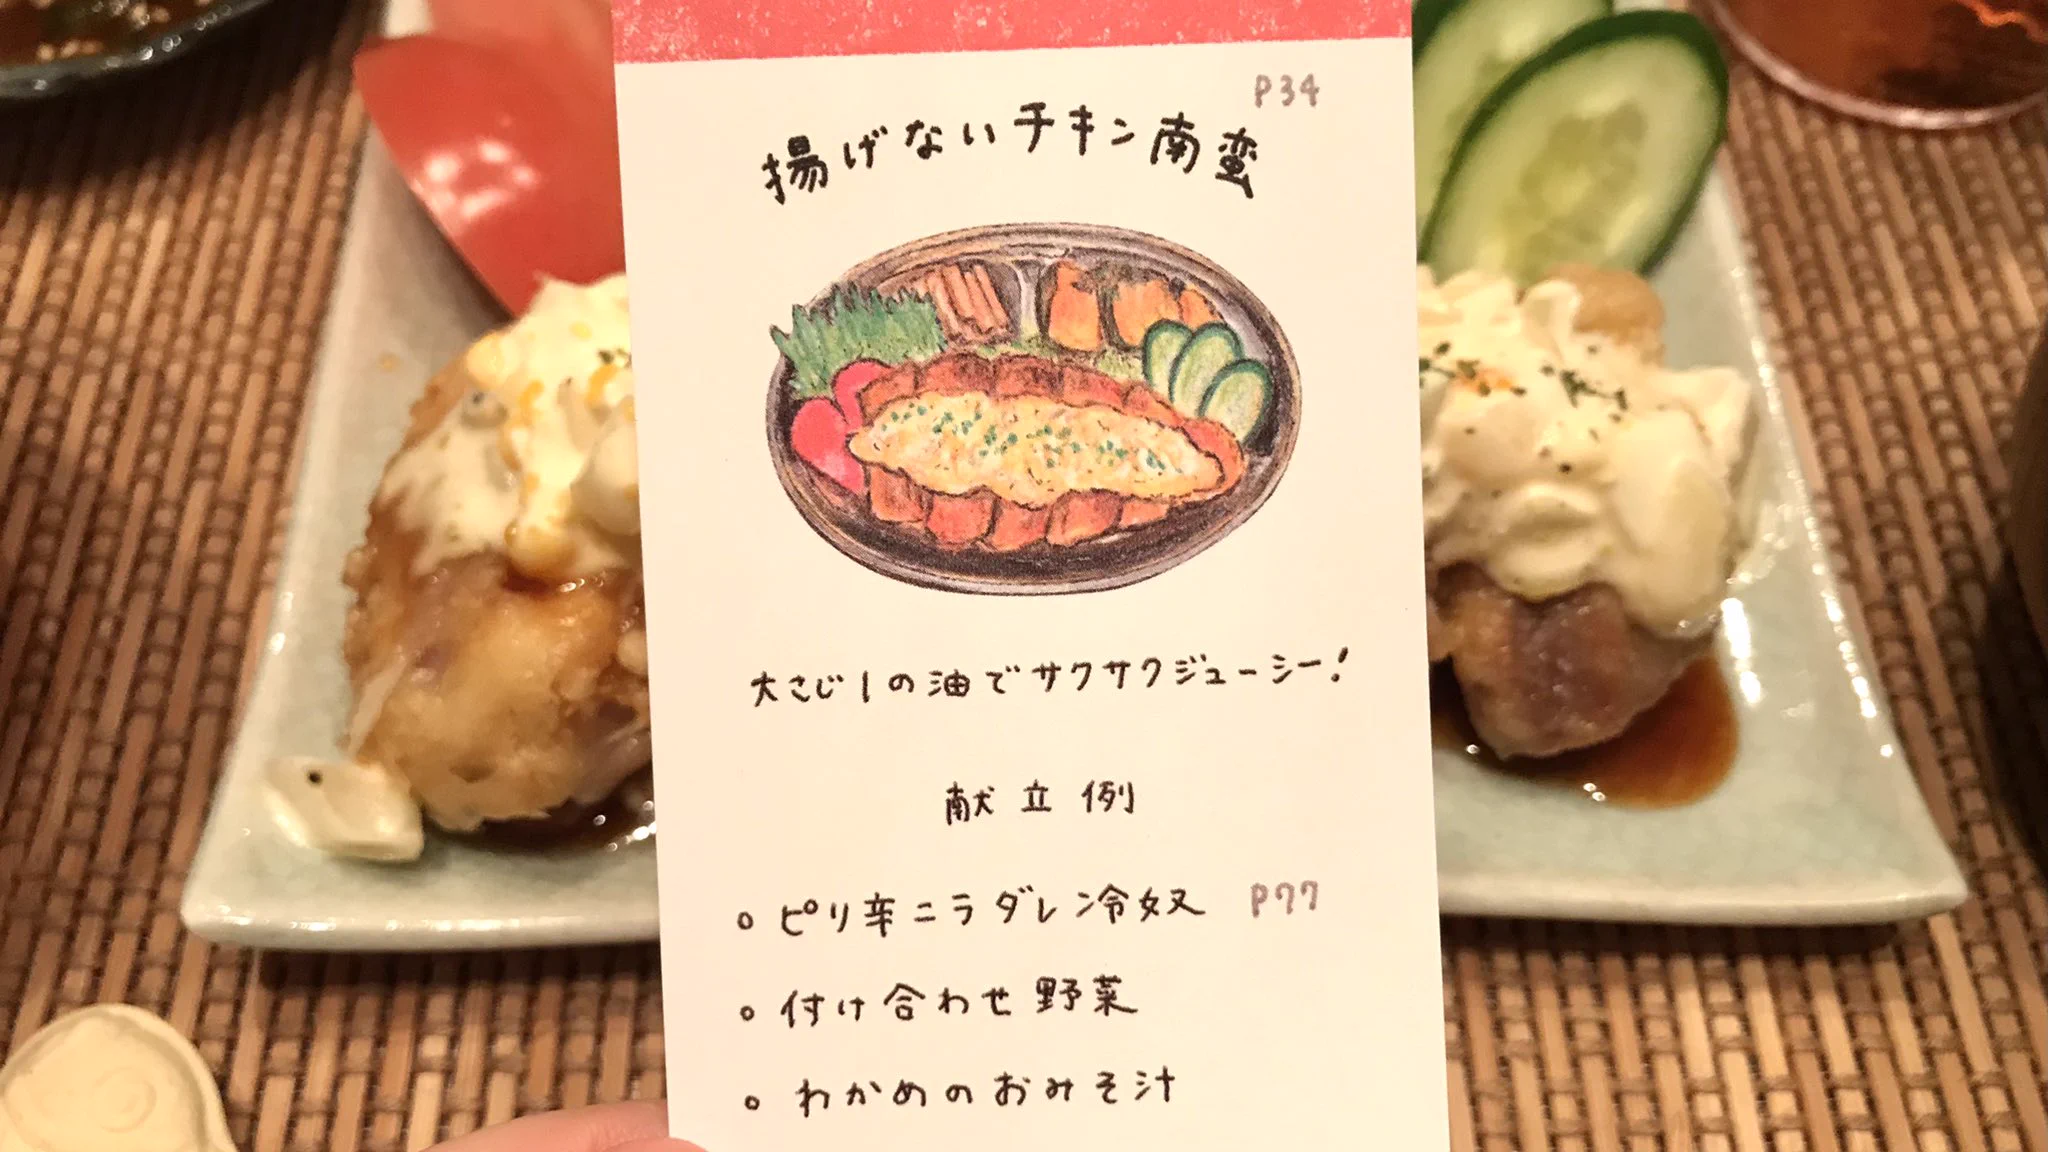 P34
揚げないチキン南蛮
大さじ1の油でサクサクジューシー!
献立例
○ピリ辛ニラダレ冷奴 P77
○付け合わせ野菜
○わかめのおみそ汁